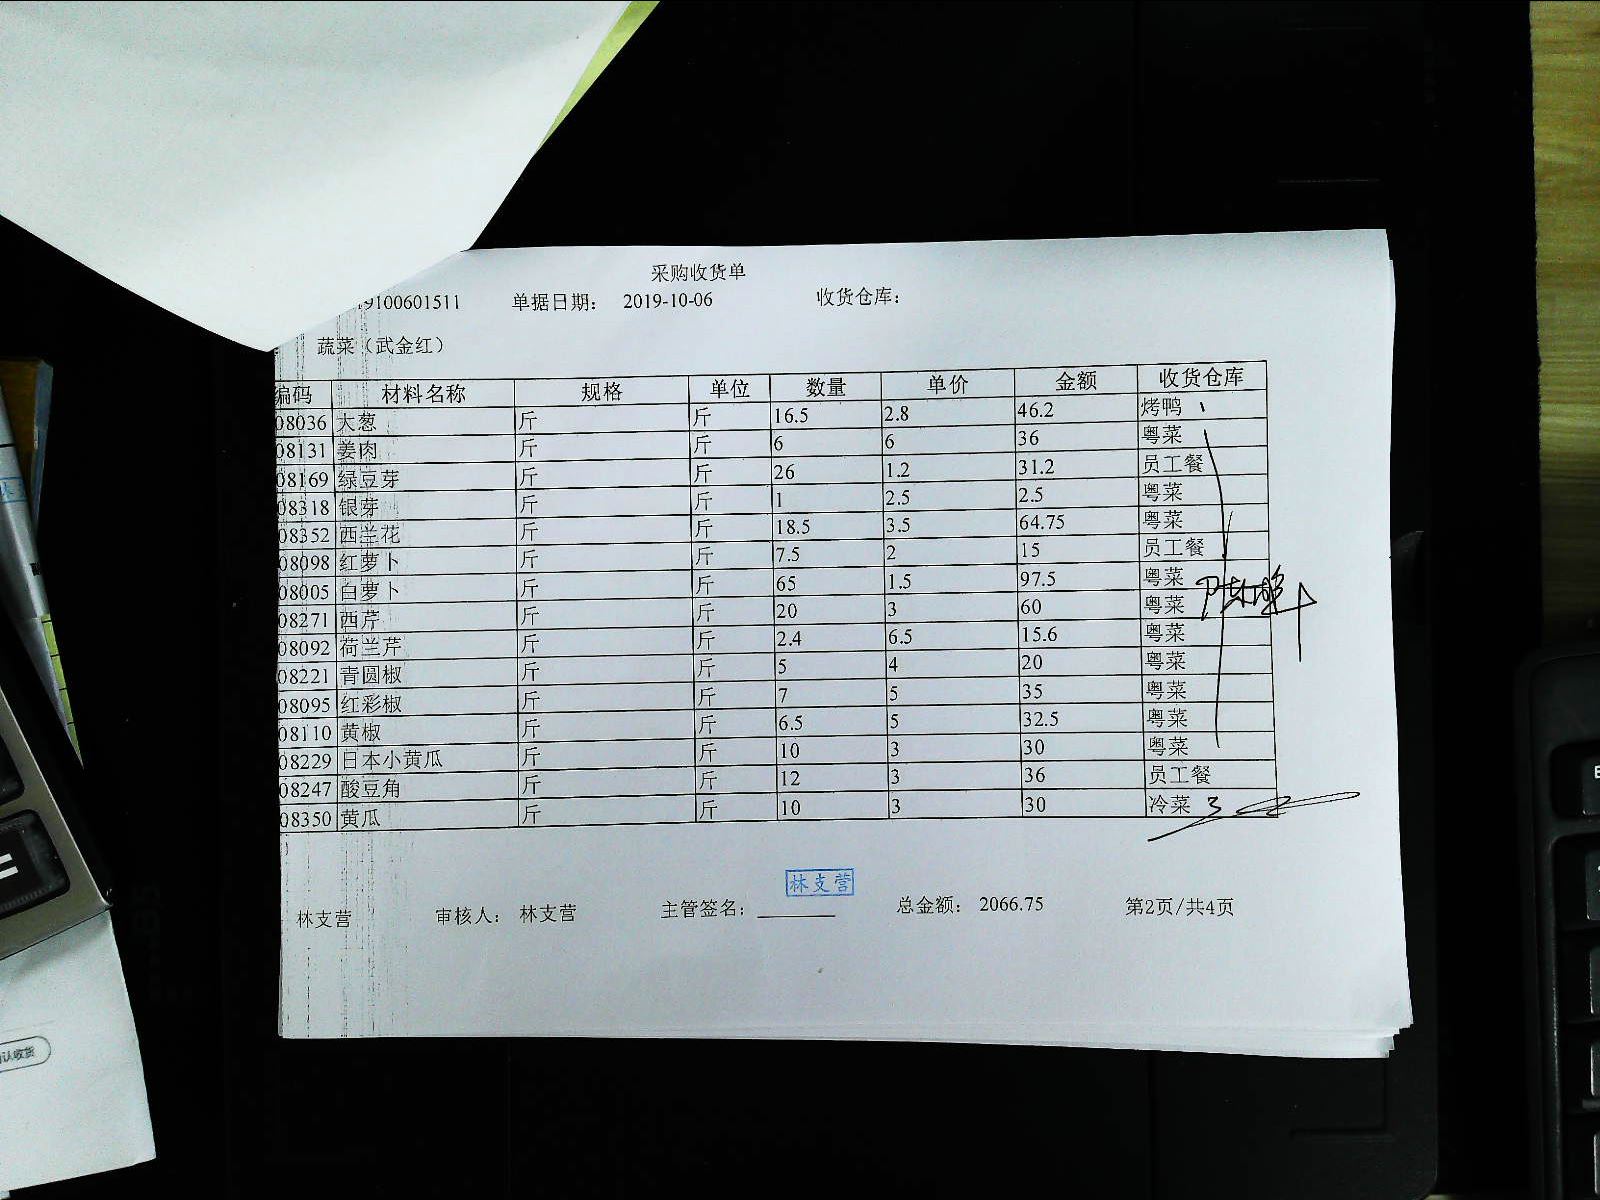 采购收货单
9100601511 单据日期： 2019-10-06 收货仓库：
蔬菜（武金红）
编码 材料名称 规格 单位 数量 单价 金额 收货仓库
08036 大葱 斤 斤 16.5 2.8 46.2 烤鸭
08131 姜肉 斤 斤 6 6 36 粤菜
08169 绿豆芽 斤 斤 26 1.2 31.2 员工餐
08318 银芽 斤 斤 1 2.5 2.5 粤菜
08352 西兰花 斤 斤 18.5 3.5 64.75 粤菜
08098 红萝卜 斤 斤 7.5 2 15 员工餐
08005 白萝卜 斤 斤 65 1.5 97.5 粤菜
08271 西芹 斤 斤 20 3 60 粤菜
08092 荷兰芹 斤 斤 2.4 6.5 15.6 粤菜
08221 青圆椒 斤 斤 5 4 20 粤菜
08095 红彩椒 斤 斤 7 5 35 粤菜
08110 黄椒 斤 斤 6.5 5 32.5 粤菜
08229 日本小黄瓜 斤 斤 10 3 30 粤菜
08247 酸豆角 斤 斤 12 3 36 员工餐
08350 黄瓜 斤 斤 10 3 30 冷菜
林支营
林支营 审核人： 林支营 主管签名： 总金额： 2066.75 第2页/共4页
认收货